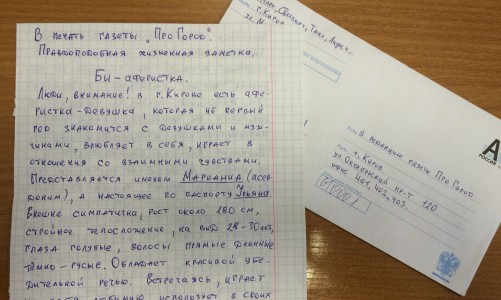 В печать газеты „Про Город".
Правдоподобная жизненная заметка.
Би-аферистка.
Люди, внимание! в г. Кирове есть афе-
ристка-девушка, которая не первый
год знакомится с девушками и муж-
чинами, влюбляет в себя, играет в
отношения со взаимными чувствами.
Представляется именем Марианна (псев-
доним), а настоящее по паспорту Ульяна.
Внешне симпатична, рост около 180 см,
стройное телосложение, на вид 28-30 лет,
глаза голубые, волосы прямые длинные
тёмно-русые. Обладает красивой убе-
дительной речью. Встречаясь, играет
любимую использует в своих
г. Киров
В редакцию газеты Про Город
г. Киров
ул. Октябрьский пр-т 120
офис 401, 402, 403.
А
РОССИЯ